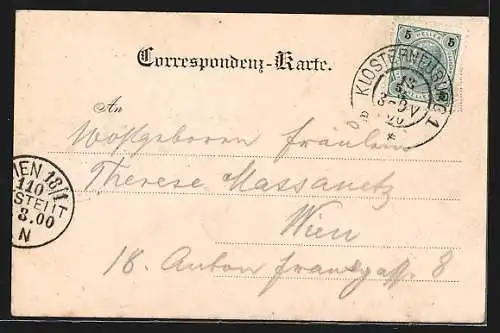 5 HELLER 5
Correspondenz-Karte.
KLOSTERNEUBURG 1
An
Wohlgeboren Fräulein
Therese Massanetz
WIEN 18/1
110
BESTELLT
3.00
N
Wien
18. Anton Frankgasse 8